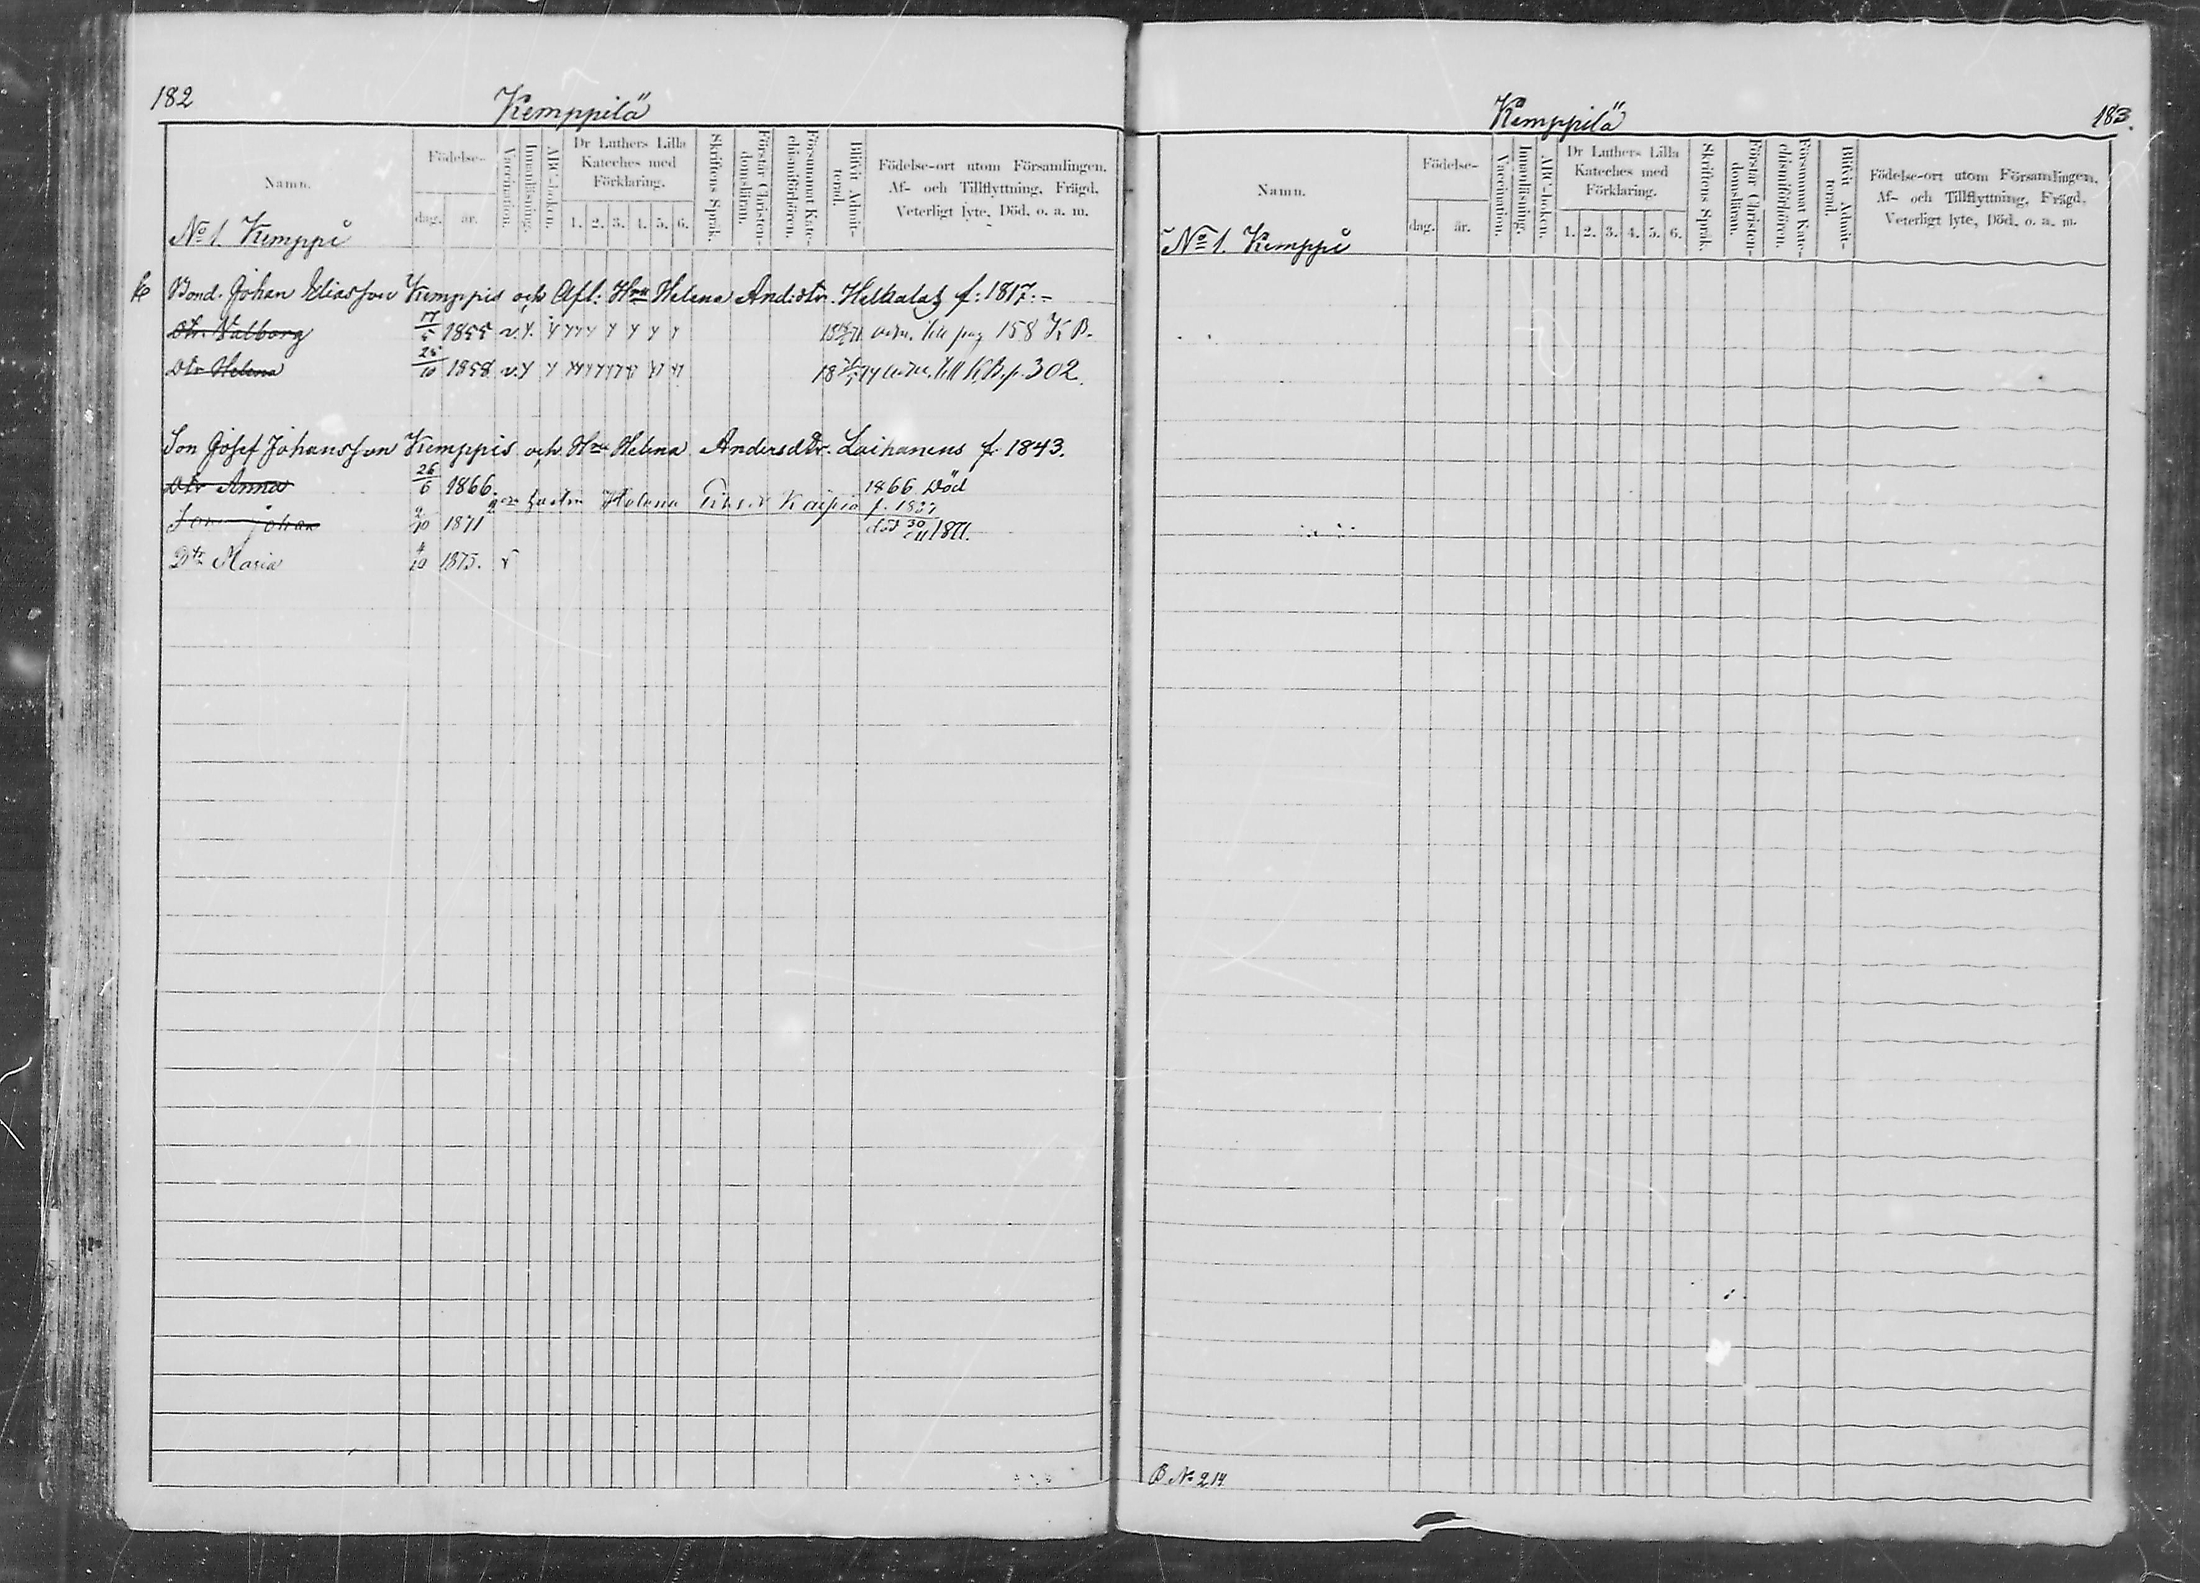 182
Kemppilä
Namn.
Födelse-
dag.
år.
Vaccination.
Innanläsning.
ABC-boken.
Dr Luthers Lilla
Kateches med
Förklaring.
1. 2. 3. 4. 5. 6.
Skriftens Språk.
Förstår Christen-
domsläran.
Försummat Kate-
chismiförhören.
Blifvit Admit-
terad.
Födelse-ort utom Församlingen,
Af- och Tillflyttning, Frägd,
Veterligt lyte, Död, o. a. m.
No 1. Kemppi
Bond. Johan Eliasson Kemppis och Afl: Hru Helena And:dtr. f: 1817.
Dtr. Valborg 17/5 1855 v. till pag 158 K B.
Dtr Helena 25/10 1858 v. till K.B. p. 302.
Son Josef Johansson Kemppis och Hru Helena Andersdtr. Laihanens f. 1843.
Dtr Anna 26/6 1866. 1866 Död
hustru Helena Kaipia
Son Johan 2/10 1871 död 30/11 1871.
Dtr Maria 4/10 1875. v
Kemppilä
183.
Namn.
Födelse-
dag.
år.
Vaccination.
Innanläsning.
ABC-boken.
Dr Luthers Lilla
Kateches med
Förklaring.
1. 2. 3. 4. 5. 6.
Skriftens Språk.
Förstår Christen-
domsläran.
Försummat Kate-
chismiförhören.
Blifvit Admit-
terad.
Födelse-ort utom Församlingen,
Af- och Tillflyttning, Frägd,
Veterligt lyte, Död, o. a. m.
No 1. Kemppi
B No 214